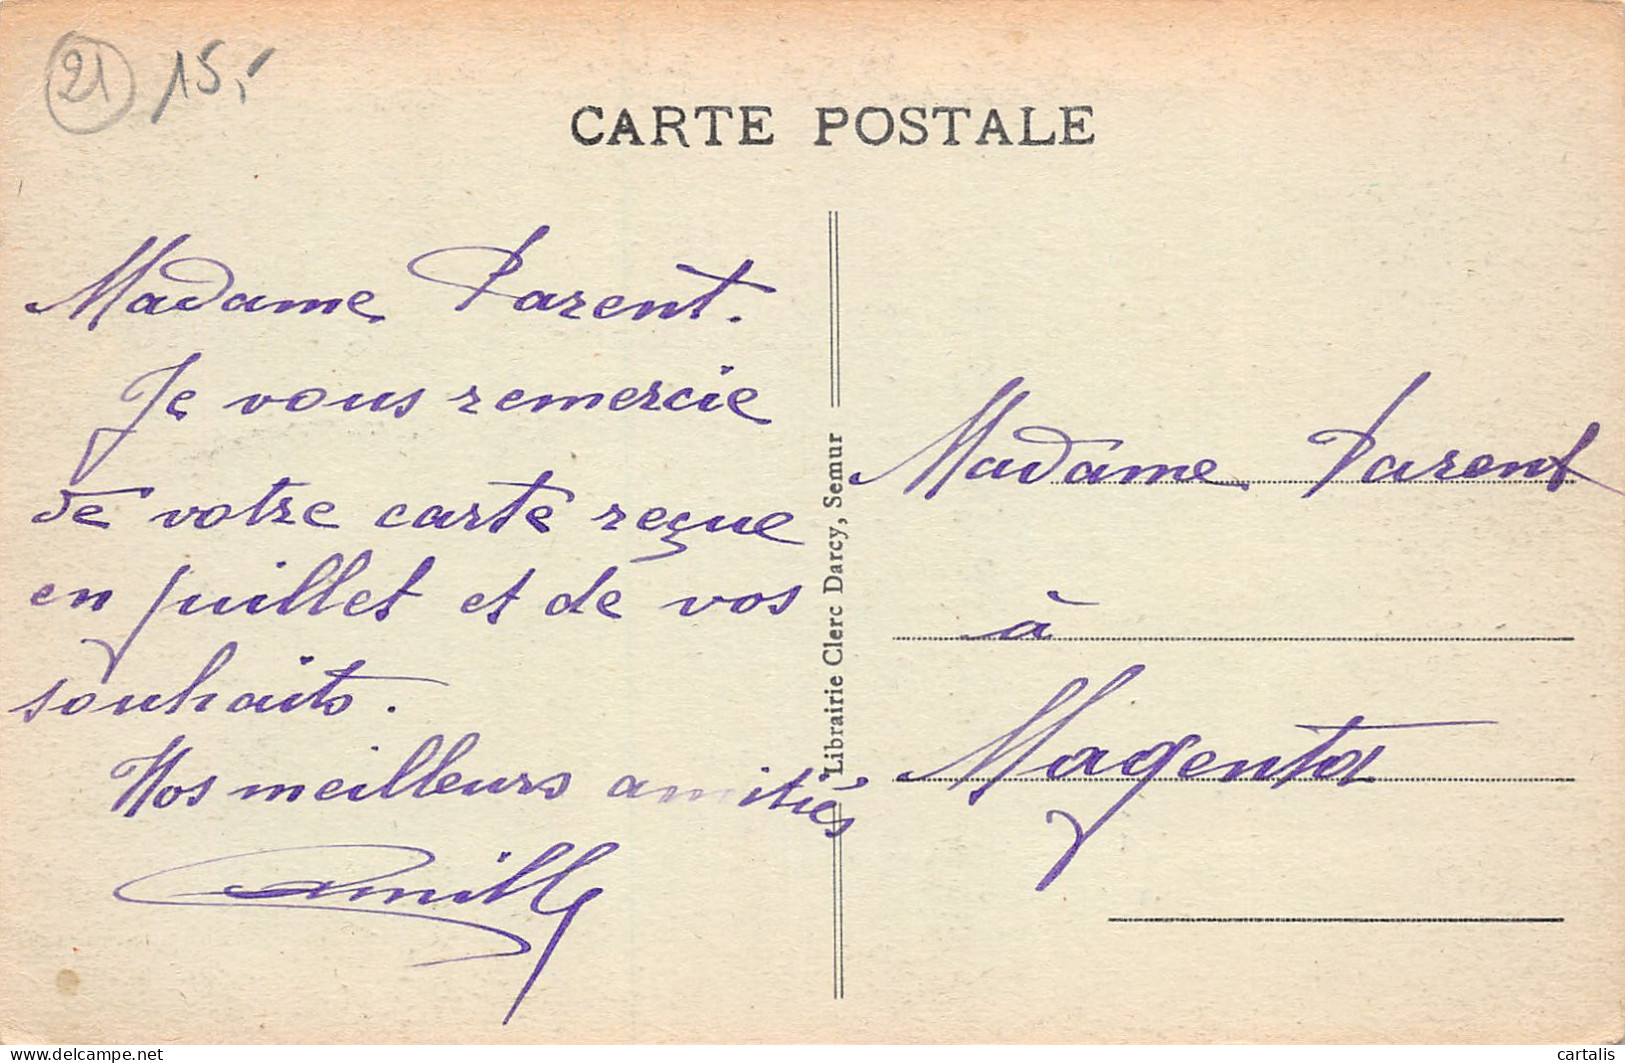 21 15,-
CARTE POSTALE
Madame Parent.
Je vous remercie
de votre carte reçue
en juillet et de vos
souhaits.
Nos meilleurs amitiés
Librairie Clerc Darcy, Semur
Madame Parent
à
Magenta
www.delcampe.net
cartalis